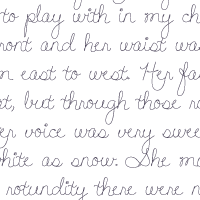 to play with in my ch
ront and her waist wa
m east to west. Her fa
at, but through those r
er voice was very swee
hite as snow. She ma
rotundity there were n